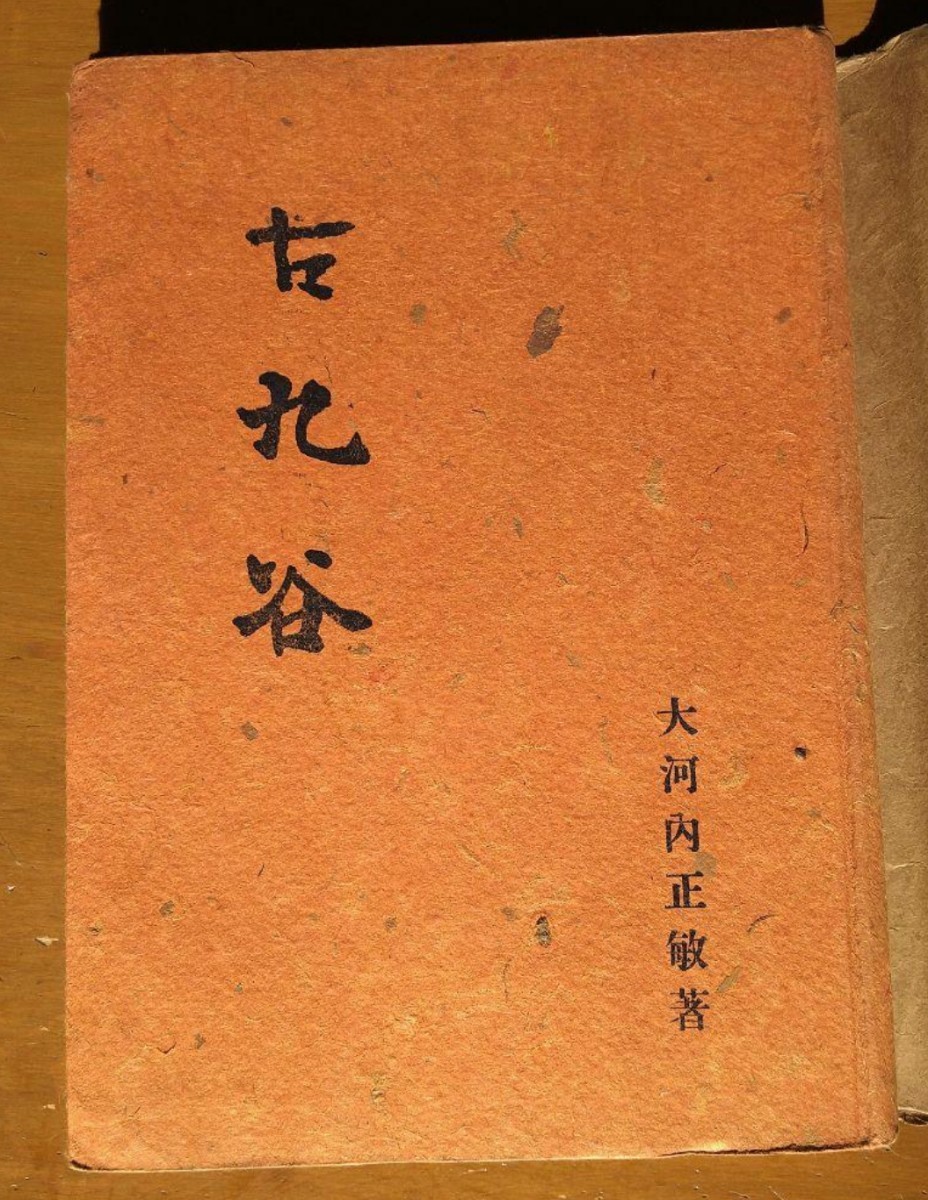 古九谷
大河內正敏著